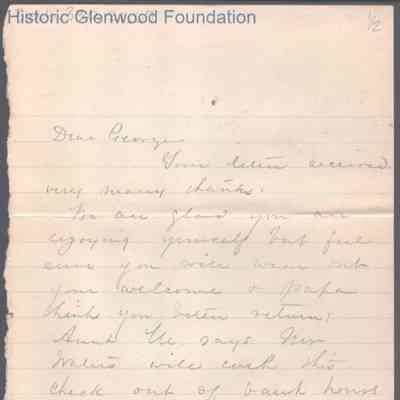 Historic Glenwood Foundation
1/2
Dear George
Your letter received
very many thanks.
We are glad you are
enjoying yourself but feel
sure you will wear out
your welcome & Papa
think you better return;
Aunt says Mr
will cash this
check out of bank hours